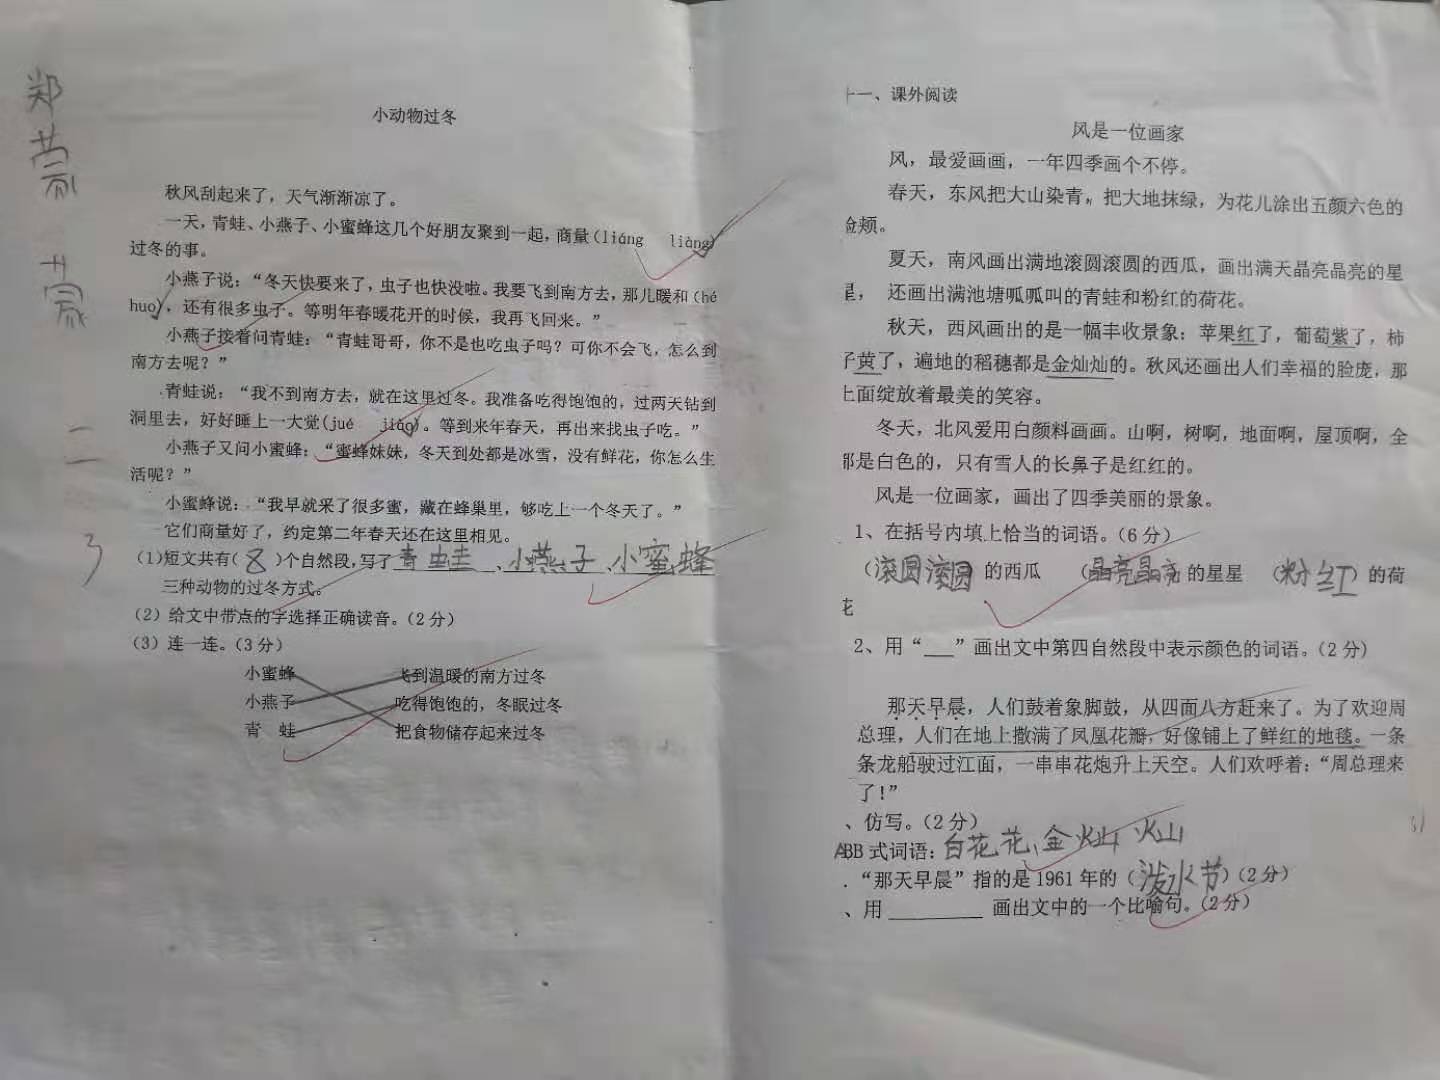 小动物过冬
秋风刮起来了，天气渐渐凉了。
一天，青蛙、小燕子、小蜜蜂这几个好朋友聚到一起，商量(liáng liàng)
过冬的事。
小燕子说：“冬天快要来了，虫子也快没啦。我要飞到南方去，那儿暖和(hé
huo)，还有很多虫子。等明年春暖花开的时候，我再飞回来。”
小燕子接着问青蛙：“青蛙哥哥，你不是也吃虫子吗？可你不会飞，怎么到
南方去呢？”
青蛙说：“我不到南方去，就在这里过冬。我准备吃得饱饱的，过两天钻到
洞里去，好好睡上一大觉(jué jiào)。等到来年春天，再出来找虫子吃。”
小燕子又问小蜜蜂：“蜜蜂妹妹，冬天到处都是冰雪，没有鲜花，你怎么生
活呢？”
小蜜蜂说：“我早就采了很多蜜，藏在蜂巢里，够吃上一个冬天了。”
它们商量好了，约定第二年春天还在这里相见。
(1)短文共有( 8 )个自然段，写了 青蛙 、小燕子、小蜜蜂
三种动物的过冬方式。
(2)给文中带点的字选择正确读音。(2分)
(3)连一连。(3分)
小蜜蜂 飞到温暖的南方过冬
小燕子 吃得饱饱的，冬眠过冬
青 蛙 把食物储存起来过冬
郑
二
3
十一、课外阅读
风是一位画家
风，最爱画画，一年四季画个不停。
春天，东风把大山染青，把大地抹绿，为花儿涂出五颜六色的
脸颊。
夏天，南风画出满地滚圆滚圆的西瓜，画出满天晶亮晶亮的星
星，还画出满池塘呱呱叫的青蛙和粉红的荷花。
秋天，西风画出的是一幅丰收景象：苹果红了，葡萄紫了，柿
子黄了，遍地的稻穗都是金灿灿的。秋风还画出人们幸福的脸庞，那
上面绽放着最美的笑容。
冬天，北风爱用白颜料画画。山啊，树啊，地面啊，屋顶啊，全
都是白色的，只有雪人的长鼻子是红红的。
风是一位画家，画出了四季美丽的景象。
1、在括号内填上恰当的词语。(6分)
(滚圆滚圆)的西瓜 (晶亮晶亮)的星星 (粉红)的荷
花
2、用“___”画出文中第四自然段中表示颜色的词语。(2分)
那天早晨，人们鼓着象脚鼓，从四面八方赶来了。为了欢迎周
总理，人们在地上撒满了凤凰花瓣，好像铺上了鲜红的地毯。一条
条龙船驶过江面，一串串花炮升上天空。人们欢呼着：“周总理来
了！”
、仿写。(2分)
ABB式词语：白花花、金灿灿
.“那天早晨”指的是1961年的(泼水节)(2分)
、用 ________ 画出文中的一个比喻句。(2分)